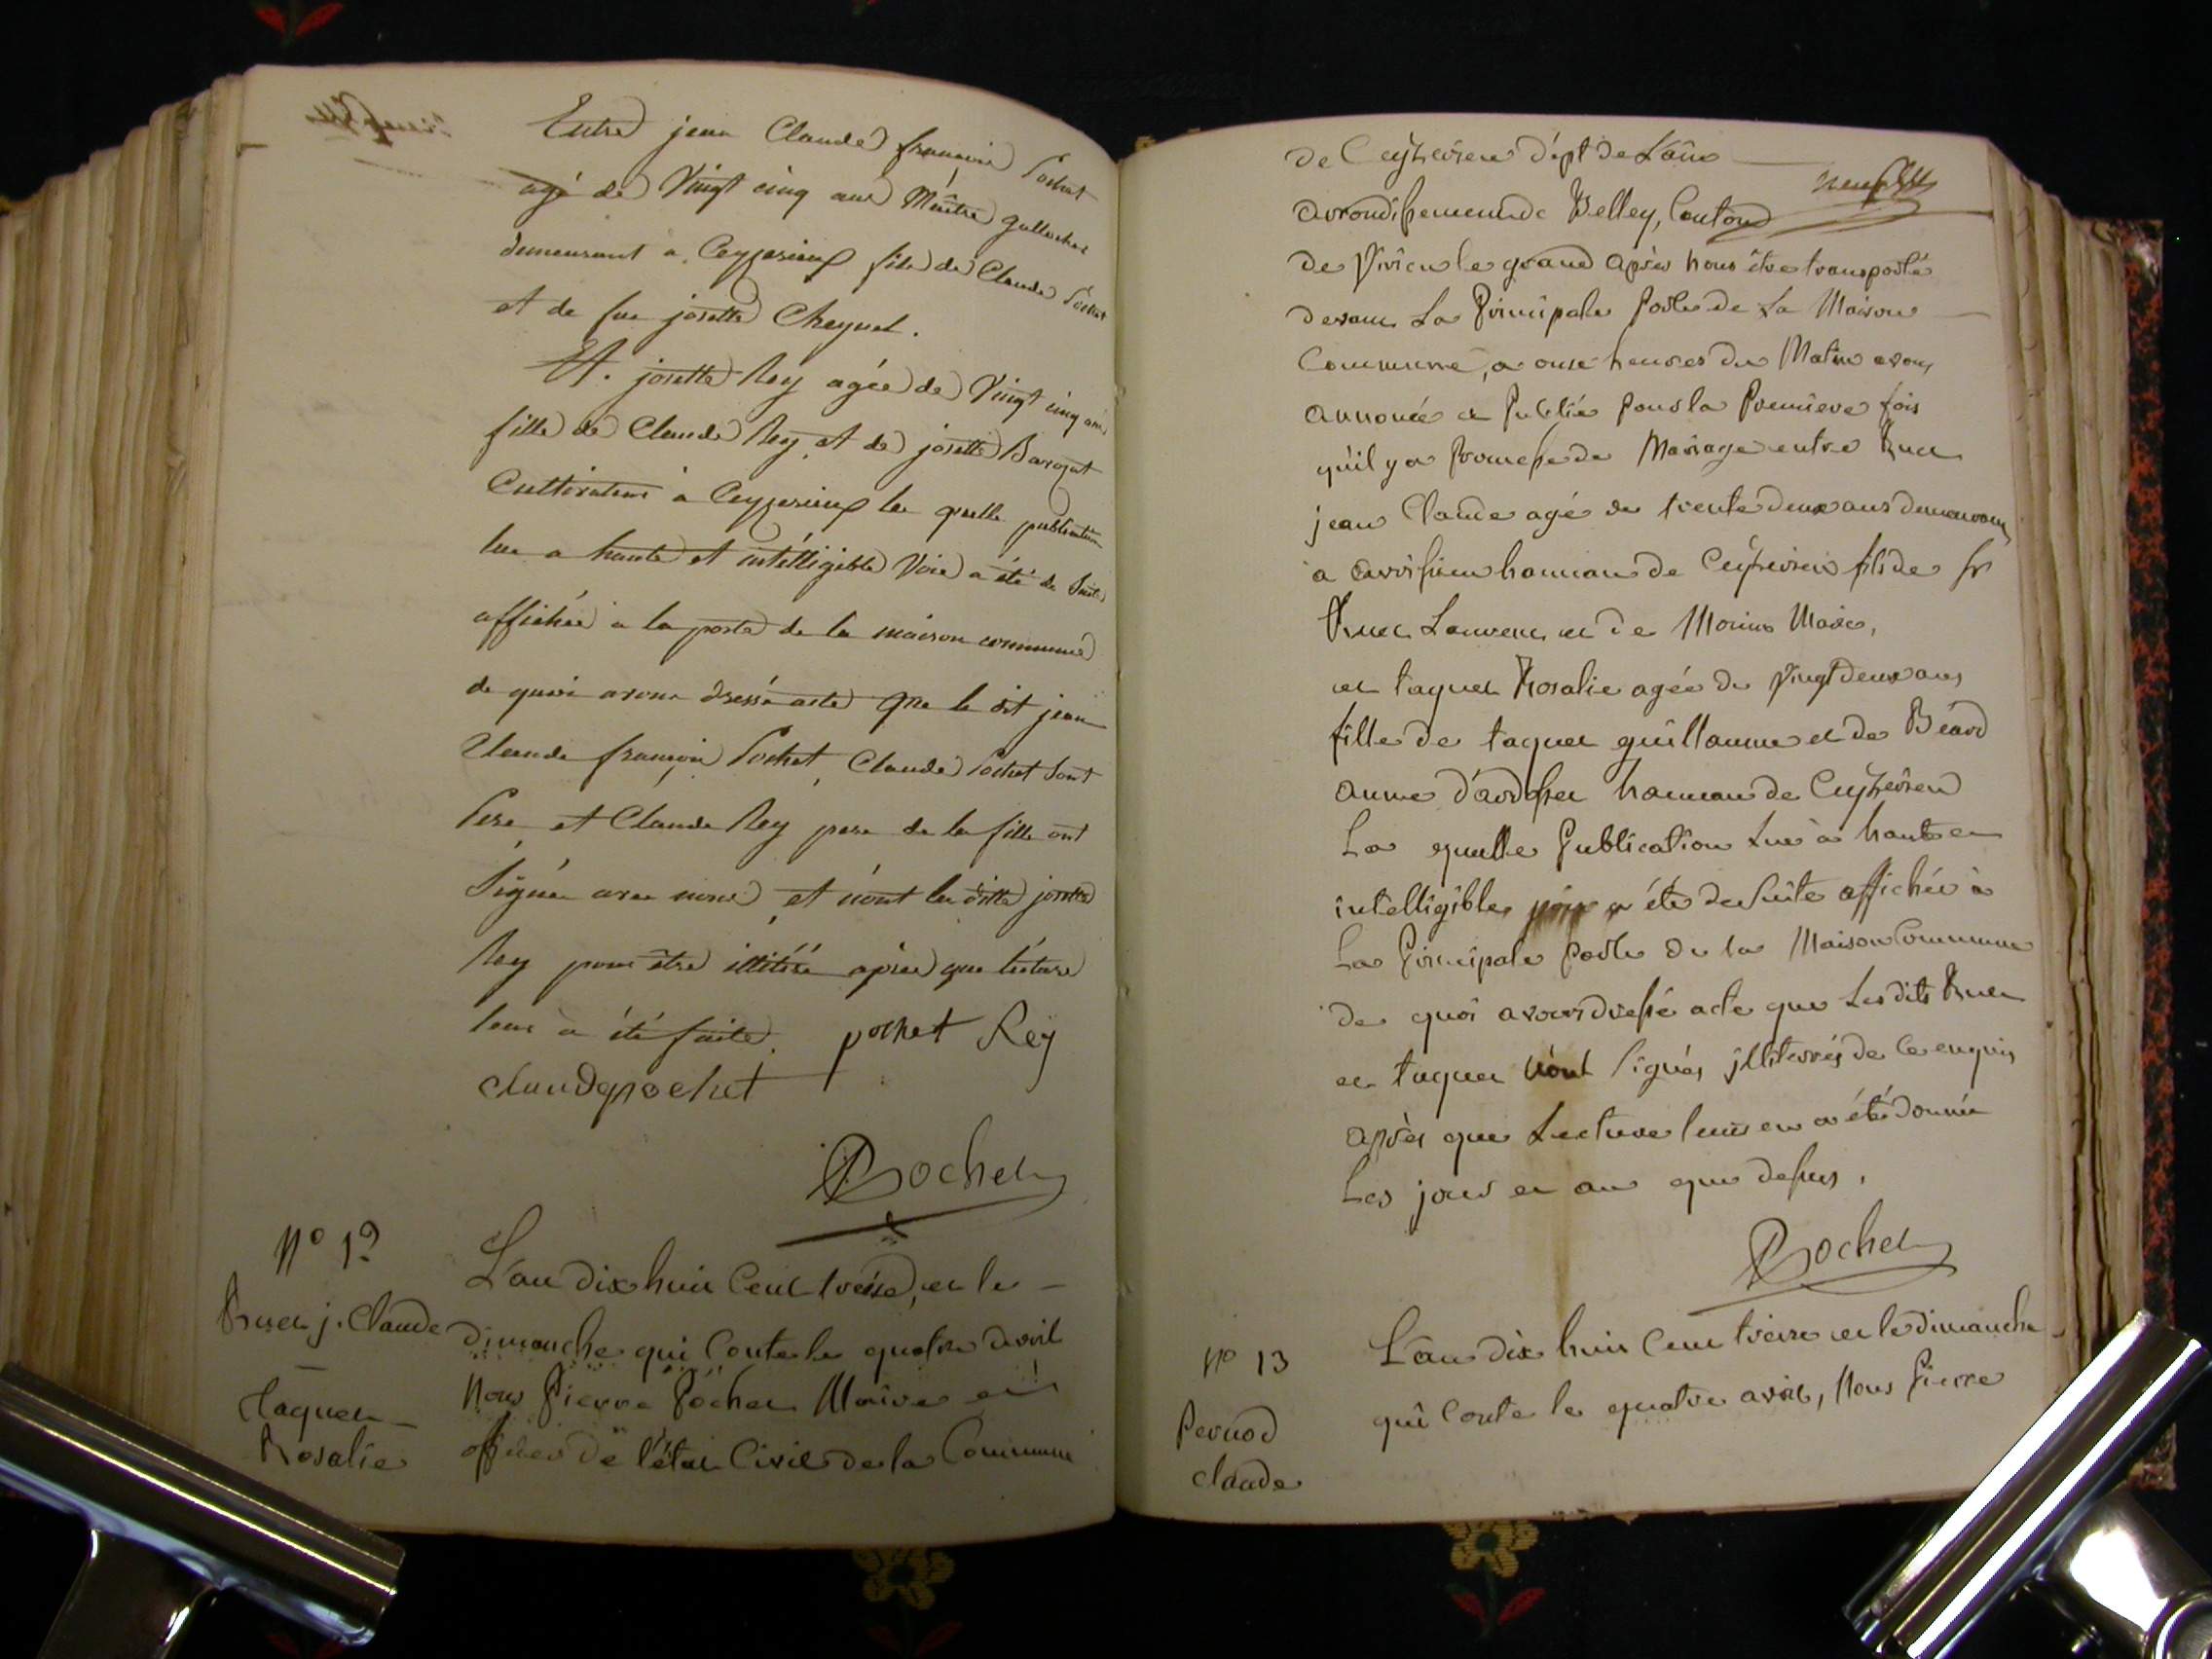 Entre jean Claude françois Pochet
agé de Vingt cinq ans Maitre gallocher
demeurant à Ceyzerieux fils de Claude Pochet
et de feu josette Cheynet.
Et. josette Rey agée de Vingt cinq ans
fille de Claude Rey, et de josette Barojat
Cultivateur à Ceyzerieux la quelle publication
lue a haute et intélligible Voix a été de Suite
affichée a la porte de la maison commune
de quoi avons dressé acte que le dit jean
Claude françois Pochet, Claude Pochet Sont
Pere et Claude Rey pere de la fille ont
Signés avec nous, et n'ont la ditte josette
Rey pour être illitéré après que lecture
leur a été faite. pochet Rey
claude pochet
Pochet
N° 12
Bruet j. Claude
Taquet
Rosalie
L'an dix huit Cent treize, et le
dimanche qui Conte le quatre davril
Nous Pierre Pochet Maire et
officier de l'état Civil de la Commune
de Ceyzerieu dépt de L'ain
neuf
arrondissement de Belley, Canton
de Virieu le grand après nous être transporté
devant La Principale Porte de La Maison
Commune, a onze heures du Matin avons
annoncé et Publié Pour la Première fois
qu'il y a Promesse de Mariage entre Bruet
jean Claude agé de trente deux ans demeurant
a avrissieu hameau de Ceyzerieu fils de
Bruet Laurent et de Morin Marie,
et taquet Rosalie agée de Vingt deux ans
fille de taquet guillaume et de Béard
anne d'ardosset hameau de Ceyzerieu
La quelle Publication Lue à haute et
intelligible voix a été de Suite affichée à
La Principale Porte de la Maison Commune
de quoi avons dressé acte que Les dits Bruet
et taquet n'ont Signés illiterrés de ce enquis
après que Lecture leur en a été donnée
Les jour et an que dessus.
Pochet
N° 13
Pernod
claude
L'an dix huit Cent treize et le dimanche
qui Conte le quatre avril, Nous Pierre